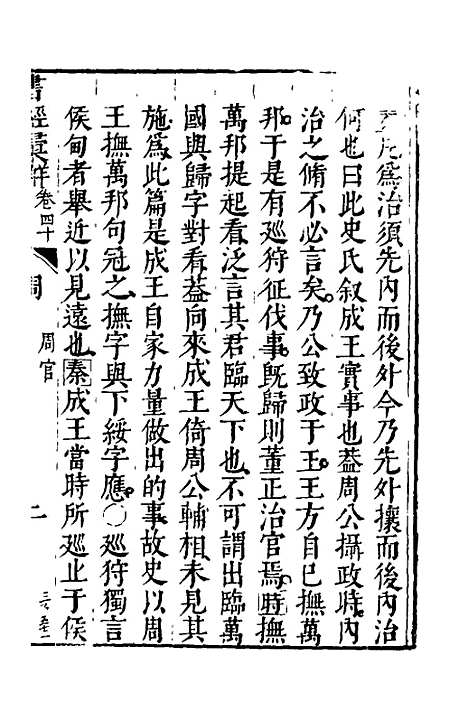 凡為治須先內而後外今乃先外攘而後內治
何也曰此史氏叙成王實事也葢周公攝政時內
治之脩不必言矣乃公致政于王王方自巳撫萬
邦于是有廵狩征伐事既歸則董正治官焉時撫
萬邦提起看泛言其君臨天下也不可謂出臨萬
國與歸字對看葢向來成王倚周公輔相未見其
施為此篇是成王自家力量做出的事故史以周
王撫萬邦句冠之撫字與下綏字應〇廵狩獨言
侯甸者舉近以見遠也秦成王當時所廵止于侯
卷四十
周官
二